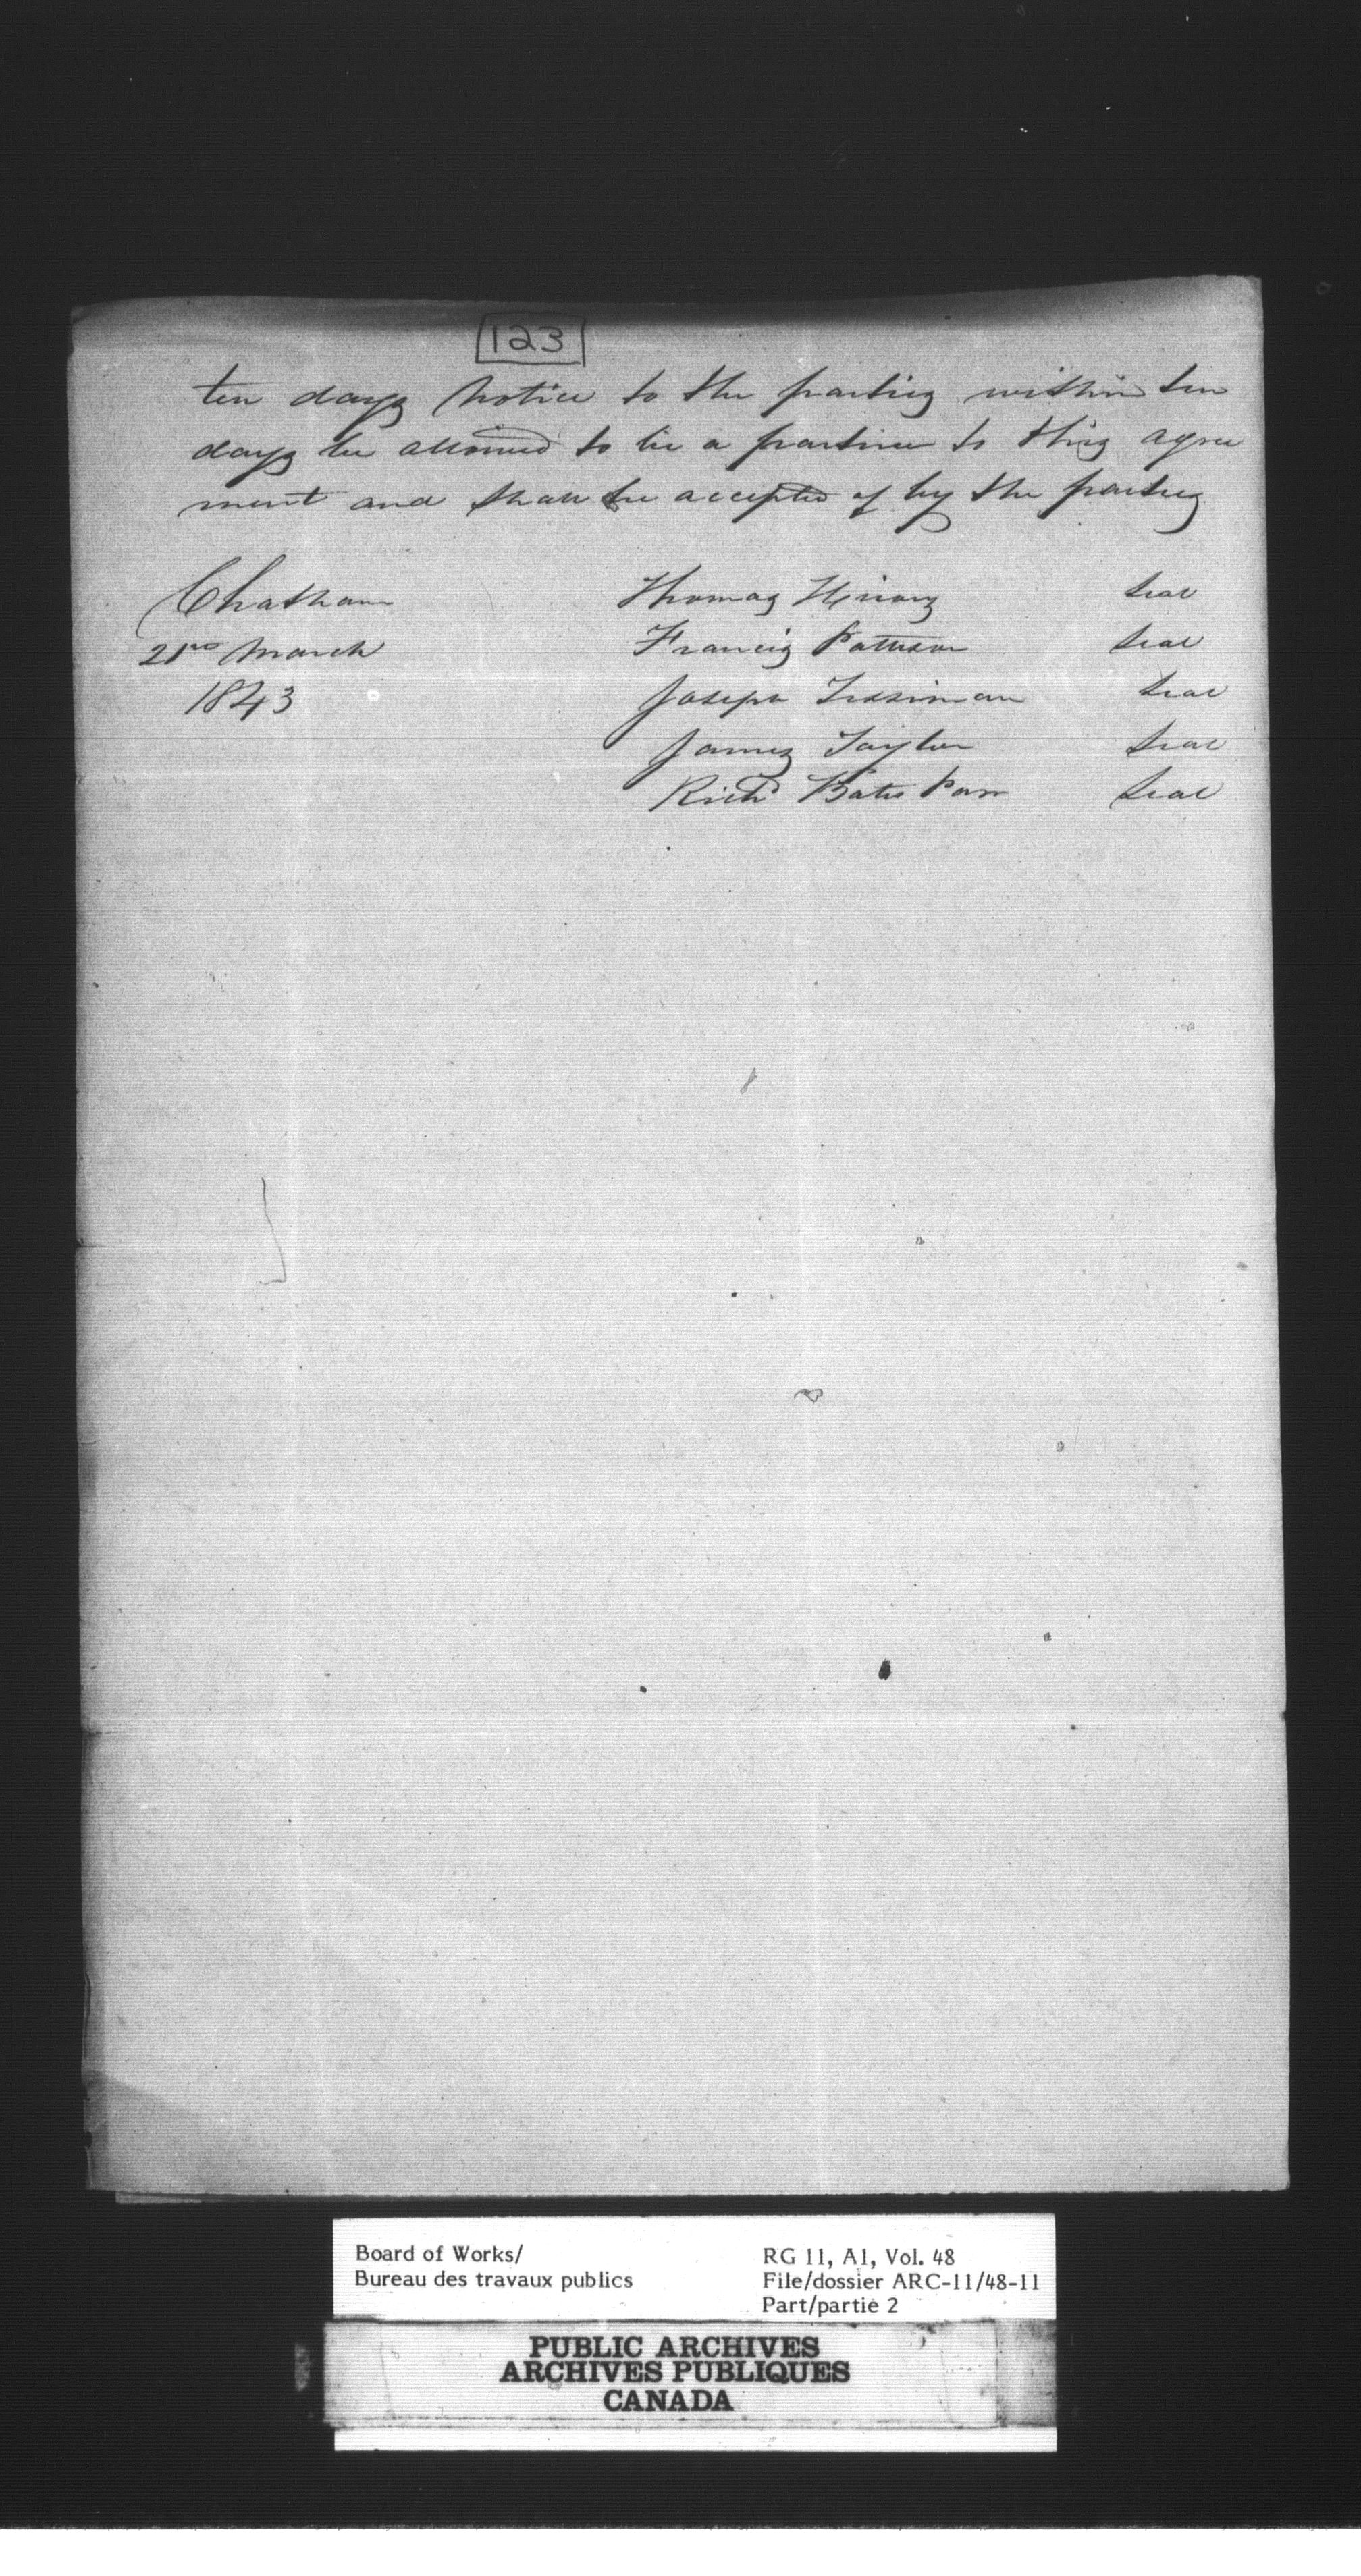 123
ten days Notice to the parties within ten
days be allowed to be a partner to this agree
ment and shall be accepted of by the parties
Chatham
21st March
1843
Thomas seal
Francis Pattison seal
Joseph Tissiman seal
James Taylor seal
Richd Bates Parr seal
Board of Works/
Bureau des travaux publics
RG 11, A1, Vol. 48
File/dossier ARC-11/48-11
Part/partie 2
PUBLIC ARCHIVES
ARCHIVES PUBLIQUES
CANADA